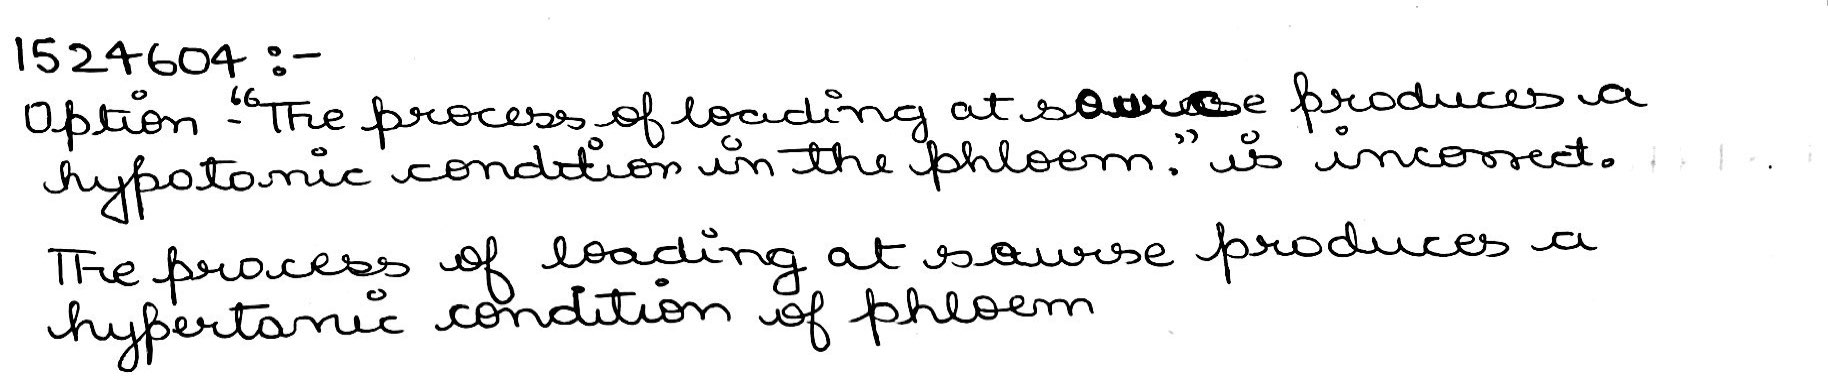 1524604 :-
Option - "The process of loading at source produces a
hypotonic condition in the phloem." is incorrect.
The process of loading at sourse produces a
hypertonic condition of phloem